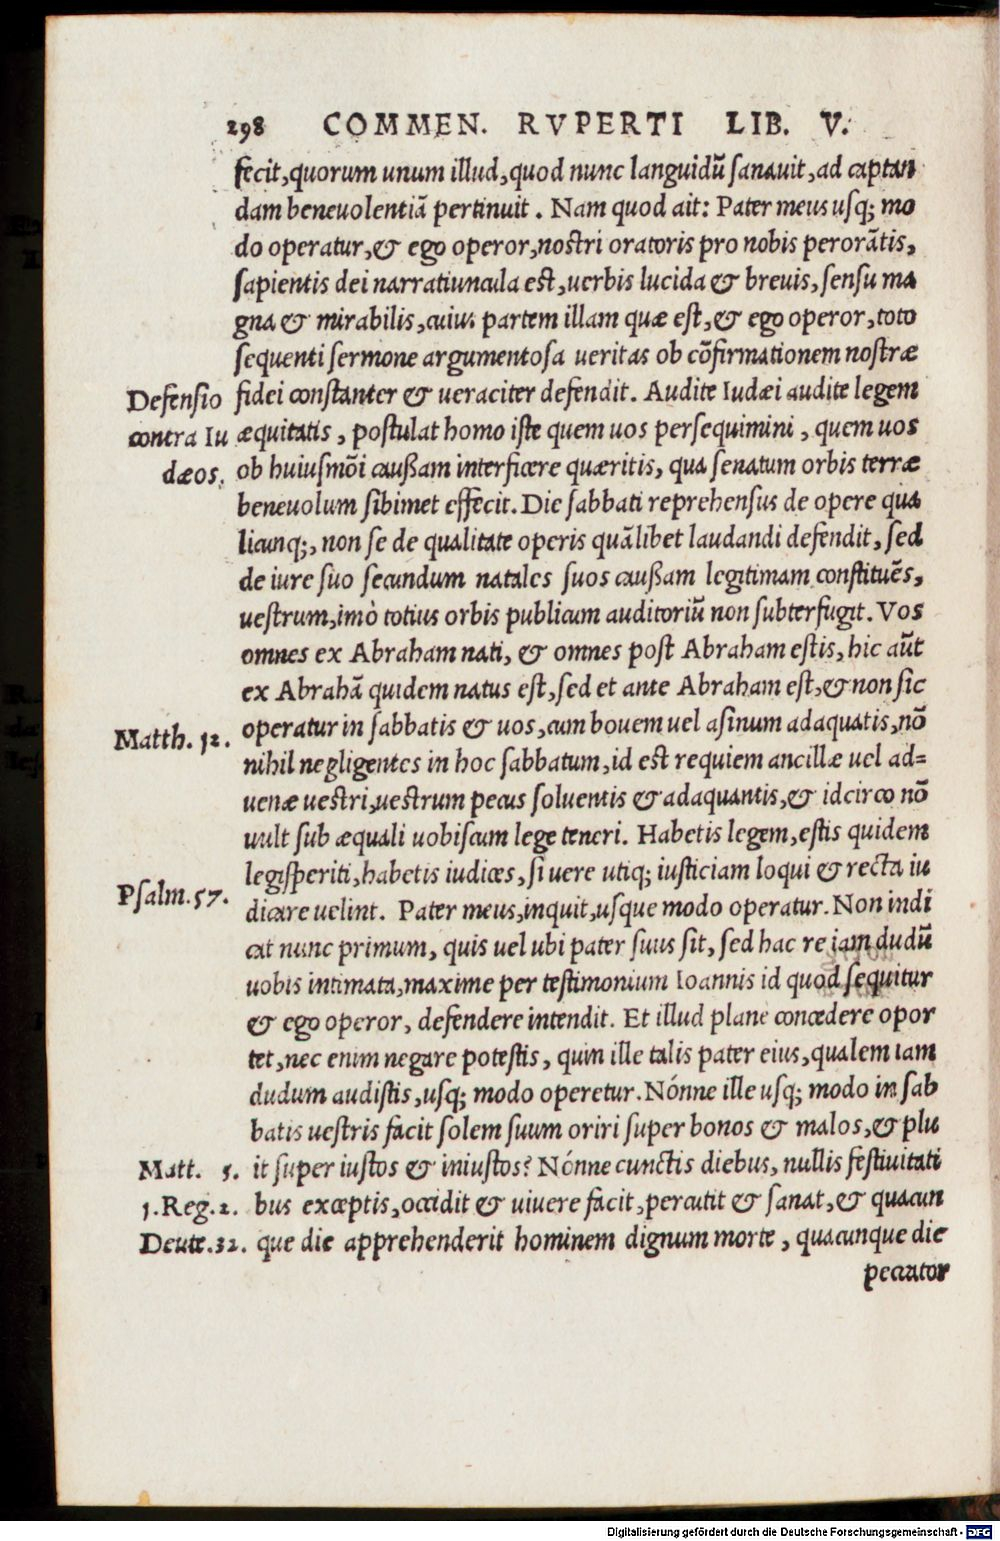 298 COMMEN. RVPERTI LIB. V.
fecit, quorum unum illud, quod nunc languidū sanauit, ad captan
dam beneuolentiā pertinuit. Nam quod ait: Pater meus usq; mo
do operatur, & ego operor, nostri oratoris pro nobis perorātis,
sapientis dei narratiuncula est, uerbis lucida & breuis, sensu ma
gna & mirabilis, cuius partem illam quæ est, & ego operor, toto
sequenti sermone argumentosa ueritas ob cōfirmationem nostræ
Defensio fidei constanter & ueraciter defendit. Audite Iudæi audite legem
contra Iu æquitatis, postulat homo iste quem uos persequimini, quem uos
dæos. ob huiusmōi caußam interficere quæritis, qua senatum orbis terræ
beneuolum sibimet effecit. Die sabbati reprehensus de opere qua
licunq;, non se de qualitate operis quālibet laudandi defendit, sed
de iure suo secundum natales suos caußam legitimam constituēs,
uestrum, imò totius orbis publicum auditoriū non subterfugit. Vos
omnes ex Abraham nati, & omnes post Abraham estis, hic aūt
ex Abrahā quidem natus est, sed et ante Abraham est, & non sic
Matth. 12. operatur in sabbatis & uos, cum bouem uel asinum adaquatis, nō
nihil negligentes in hoc sabbatum, id est requiem ancillæ uel ad=
uenæ uestri, uestrum pecus soluentis & adaquantis, & idcirco nō
uult sub æquali uobiscum lege teneri. Habetis legem, estis quidem
legisperiti, habetis iudices, si uere utiq; iusticiam loqui & recta iu
Psalm. 57. dicare uelint. Pater meus, inquit, usque modo operatur. Non indi
cat nunc primum, quis uel ubi pater suus sit, sed hac re iam dudū
uobis intimata, maxime per testimonium Ioannis id quod sequitur
& ego operor, defendere intendit. Et illud plane concedere opor
tet, nec enim negare potestis, quin ille talis pater eius, qualem iam
dudum audistis, usq; modo operetur. Nónne ille usq; modo in sab
batis uestris facit solem suum oriri super bonos & malos, & plu
Matt. 5. it super iustos & iniustos? Nónne cunctis diebus, nullis festiuitati
1. Reg. 2. bus exceptis, occidit & uiuere facit, percutit & sanat, & quacun
Deute. 32. que die apprehenderit hominem dignum morte, quacunque die
peccator
Digitalisierung gefördert durch die Deutsche Forschungsgemeinschaft - DFG